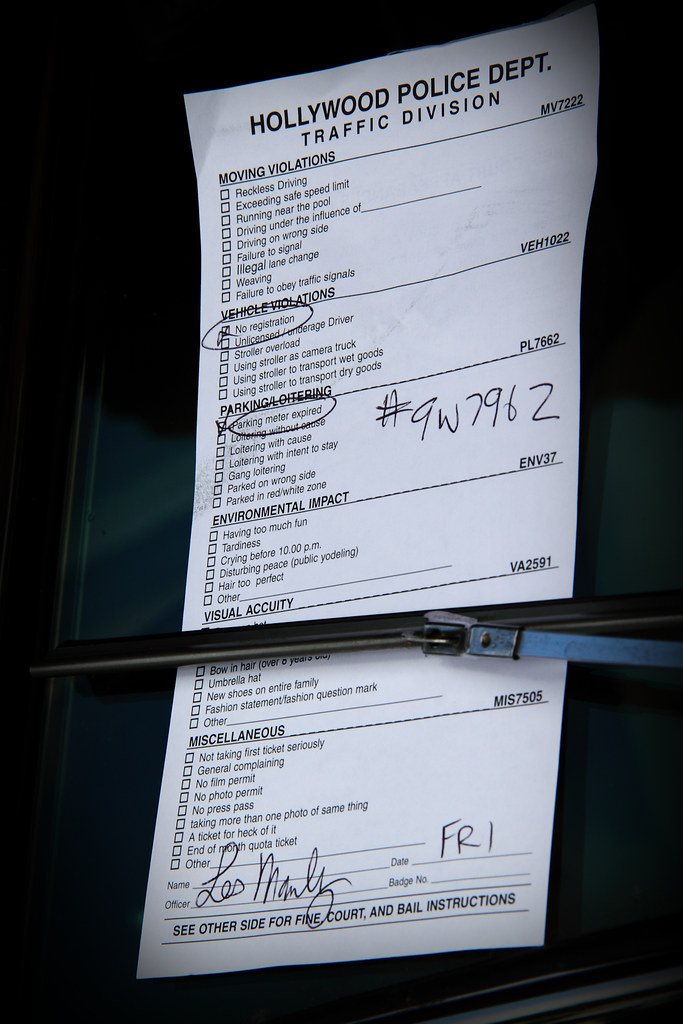 HOLLYWOOD POLICE DEPT.
TRAFFIC DIVISION
MV7222
MOVING VIOLATIONS
Reckless Driving
Exceeding safe speed limit
Running near the pool
Driving under the influence of
Driving on wrong side
Failure to signal
Illegal lane change
Weaving
Failure to obey traffic signals
VEH1022
VEHICLE VIOLATIONS
No registration
Unlicensed / underage Driver
Stroller overload
Using stroller as camera truck
Using stroller to transport wet goods
Using stroller to transport dry goods
PL7662
PARKING/LOITERING
Parking meter expired
#9W7962
Loitering without cause
Loitering with cause
Loitering with intent to stay
Gang loitering
Parked on wrong side
Parked in red/white zone
ENV37
ENVIRONMENTAL IMPACT
Having too much fun
Tardiness
Crying before 10.00 p.m.
Disturbing peace (public yodeling)
Hair too perfect
Other
VA2591
VISUAL ACCUITY
Bow in hair (over 8 years old)
Umbrella hat
New shoes on entire family
Fashion statement/fashion question mark
Other
MIS7505
MISCELLANEOUS
Not taking first ticket seriously
General complaining
No film permit
No photo permit
No press pass
taking more than one photo of same thing
A ticket for heck of it
End of month quota ticket
Other
Name Date FRI
Officer Les Manly Badge No.
SEE OTHER SIDE FOR FINE, COURT, AND BAIL INSTRUCTIONS